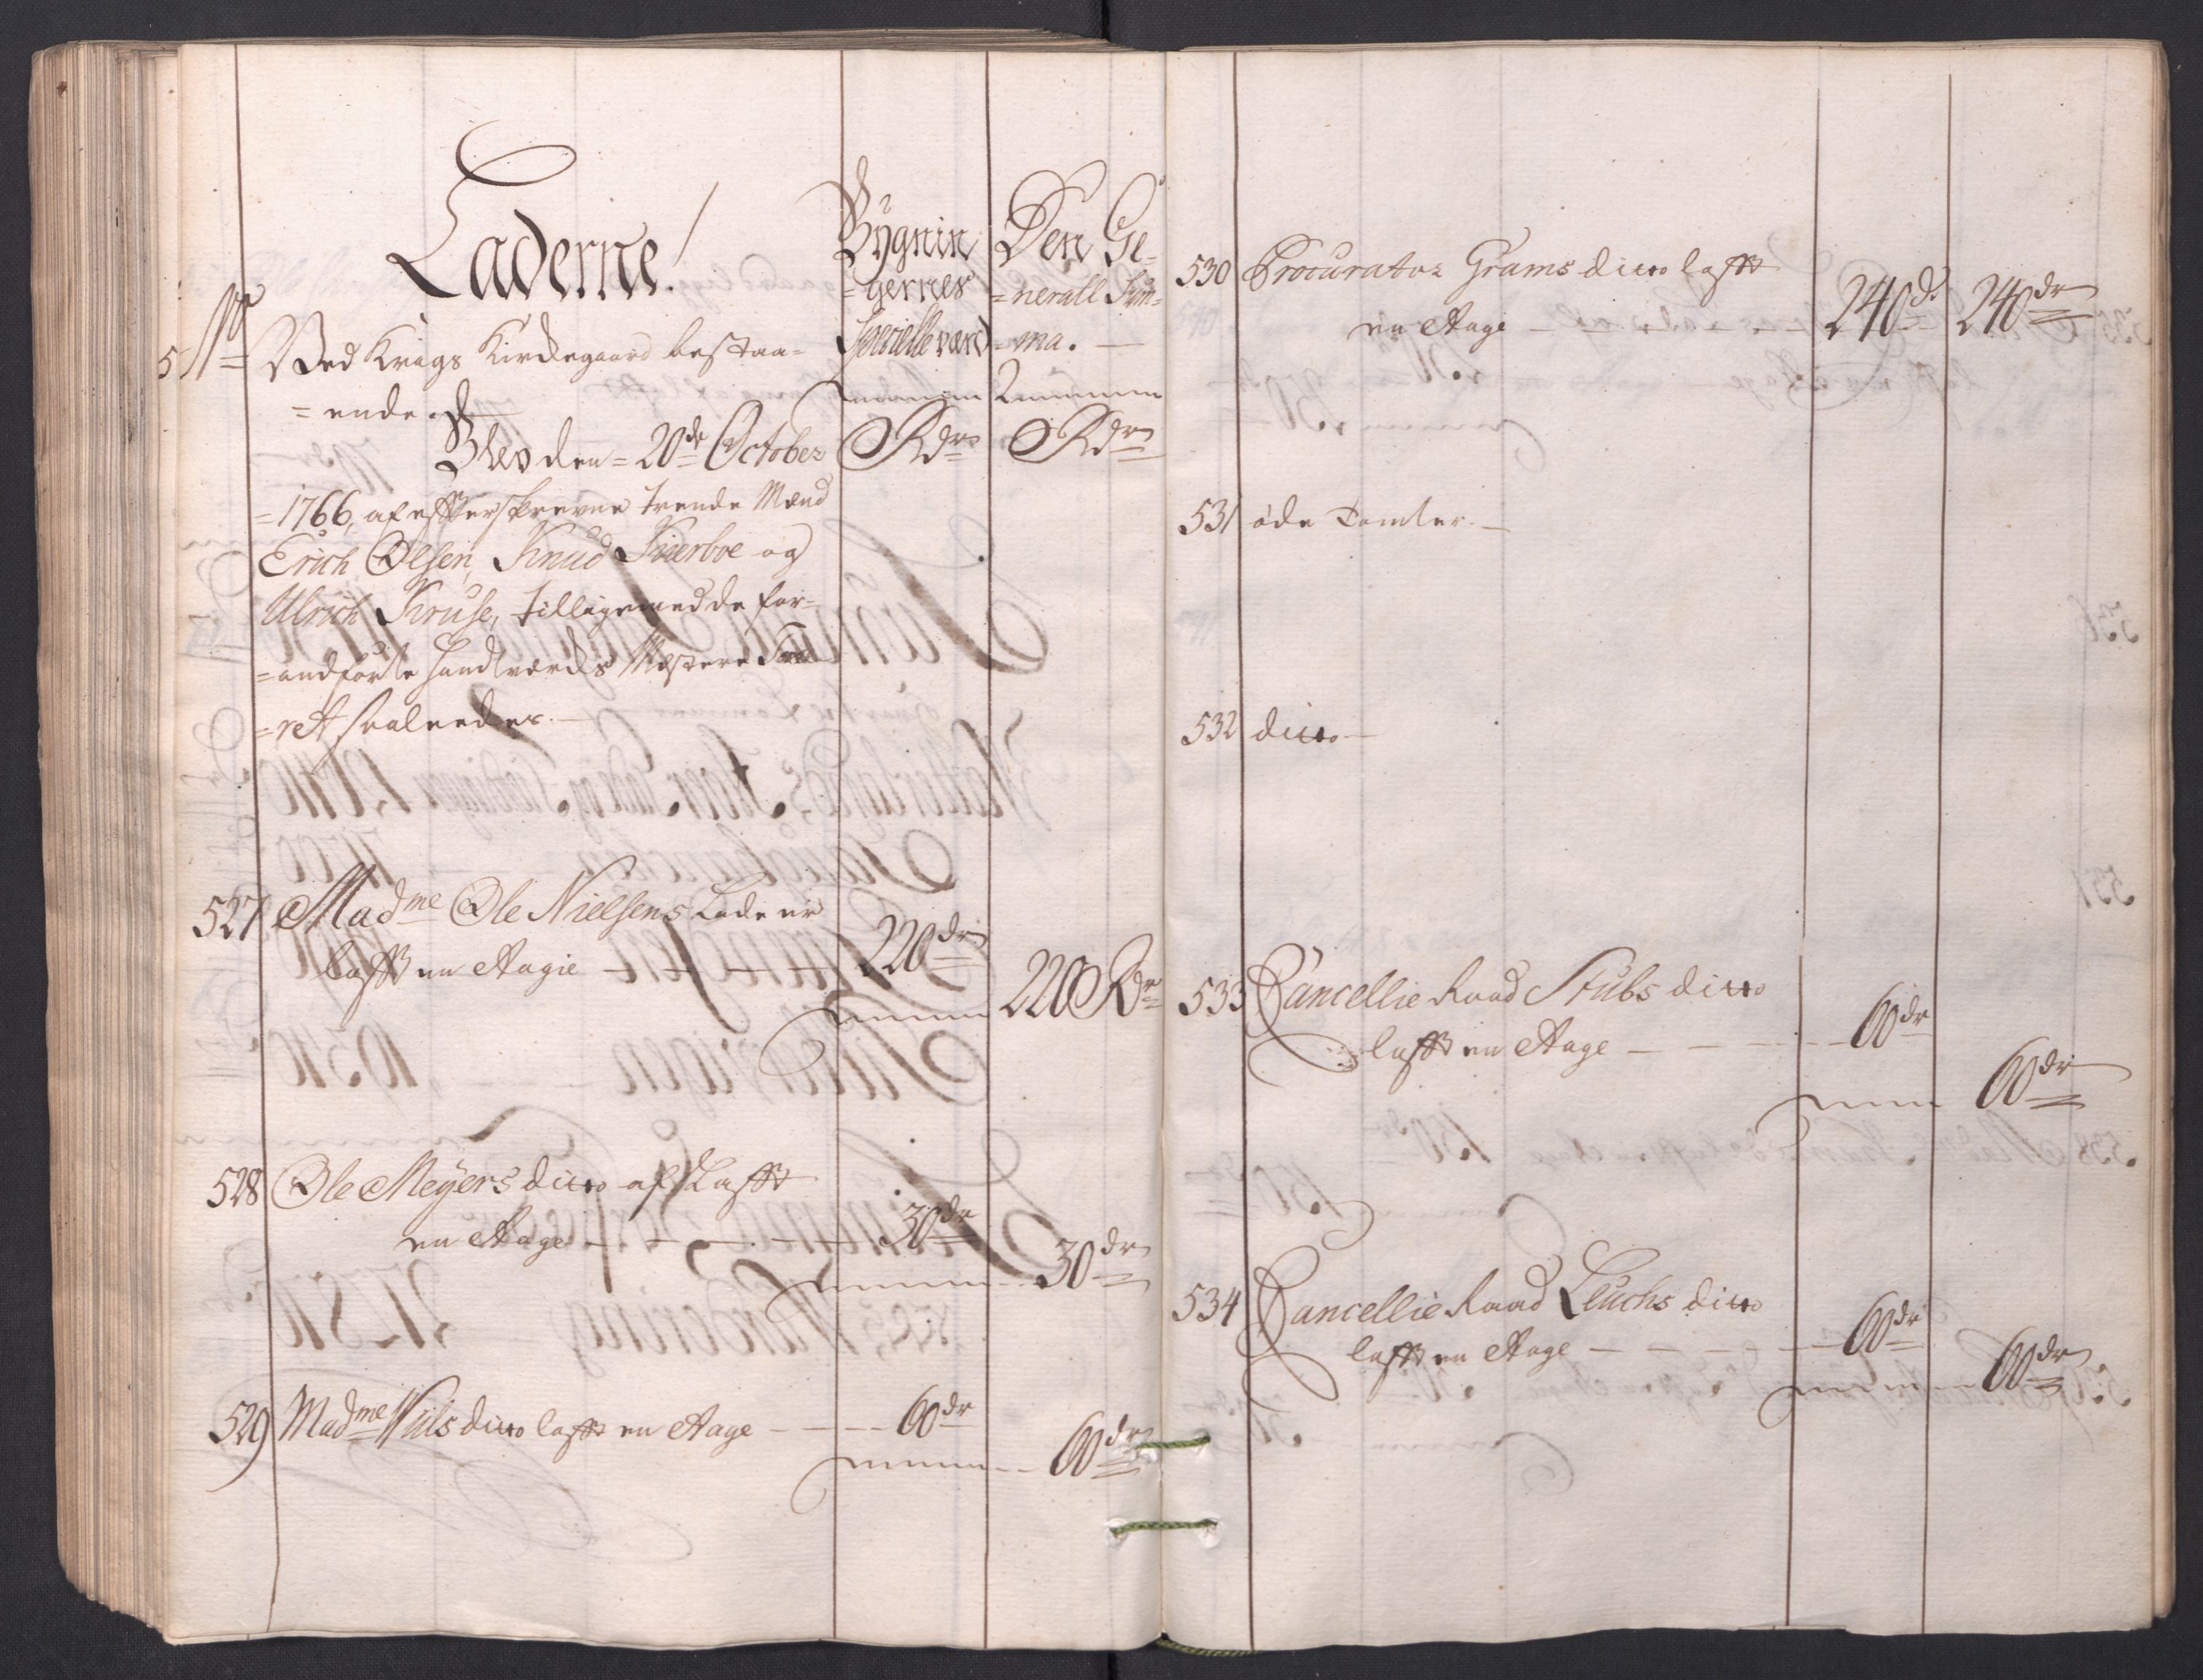 Laderne!
Bygnin
=gernes
Specielle værd
Den Ge-
=nerall Sum-
=ma. —
No
Ved Krigs Kirkegaard bestaa=
=ende
Rdr
Rdr
Blev den = 20de October
=1766, af efterskrevne trende Mænd
Erich Olsen, Knud Kierboe og
Ulrich Kruse, tilligemed de for=
=andførte Handtværcks Mestere Taxe-
=ret saaledes. —
527 Madme Ole Nielsens Lade er
lafft en Etagie — — — — 220dr
220 Rdr
528 Ole Meyers ditto af Lafft
en Etage — — — — 30dr
30dr
529 Madme Wils ditto lafft en Etage — — — 60dr
60dr
530 Procurator Grams ditto lafft
en Etage — — — 240dr 240dr
531 øde Tomter. —
532 ditto —
533 Cancellie Raad Stubs ditto
lafft en Etage — — — — 60dr
60dr
534 Cancellie Raad Leuchs ditto
lafft en Etage — — — — — 60dr
60dr